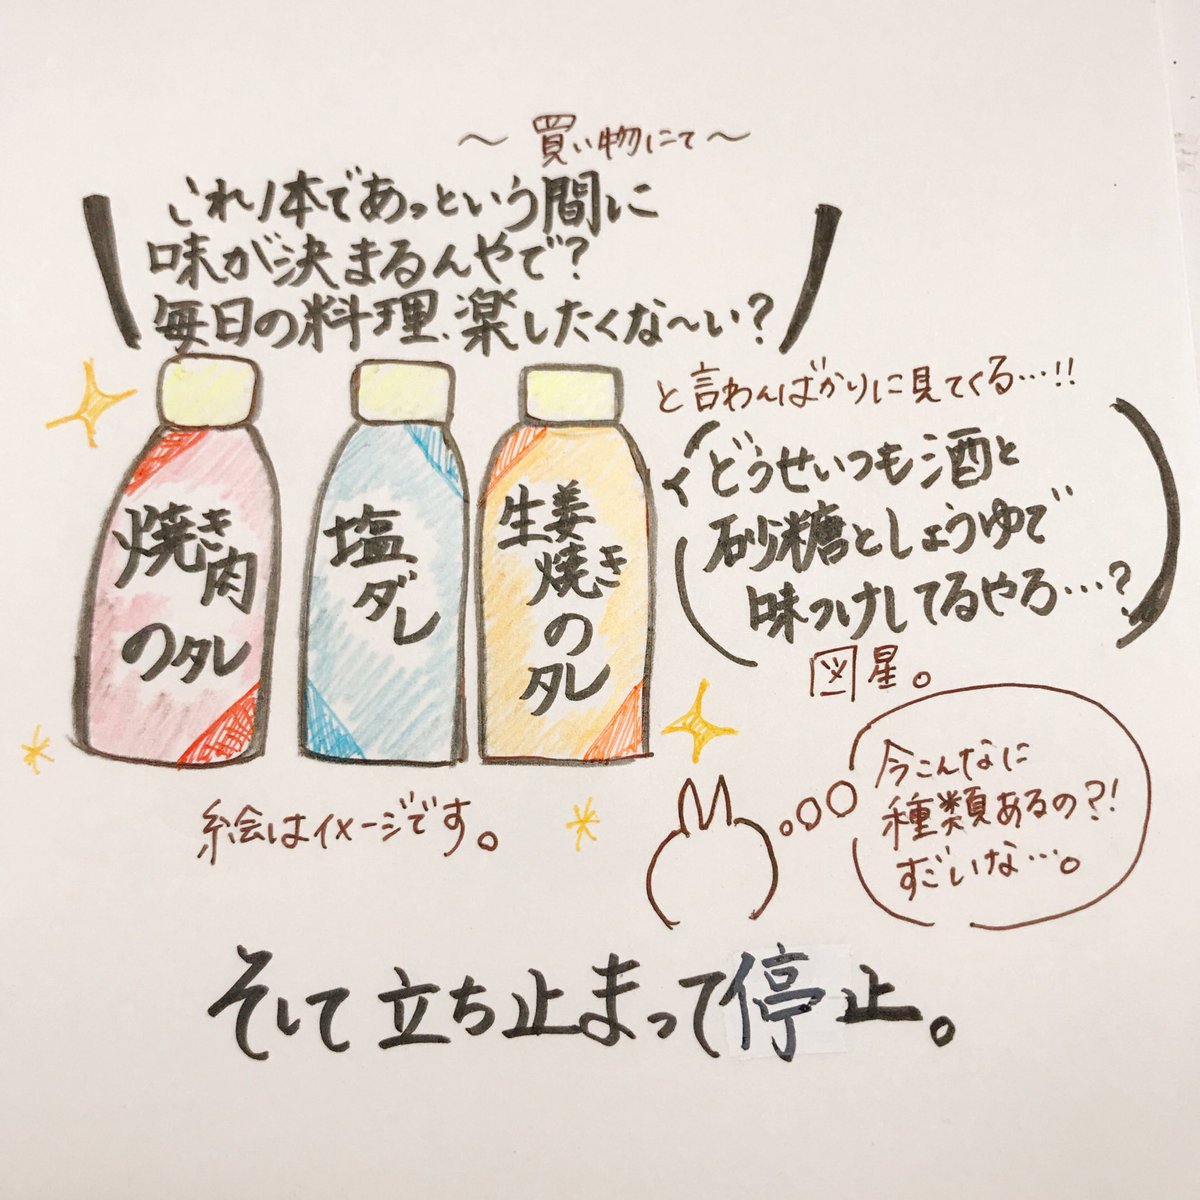 〜買い物にて〜
これ1本であっという間に
味が決まるんやで?
毎日の料理、楽したくな〜い?
と言わんばかりに見てくる…!!
焼き肉
のタレ
塩
ダレ
生姜
焼き
の
タレ
どうせいつも酒と
砂糖としょうゆで
味つけしてるやろ…?
図星。
今こんなに
種類あるの?!
すごいな…。
絵はイメージです。
そして立ち止まって停止。